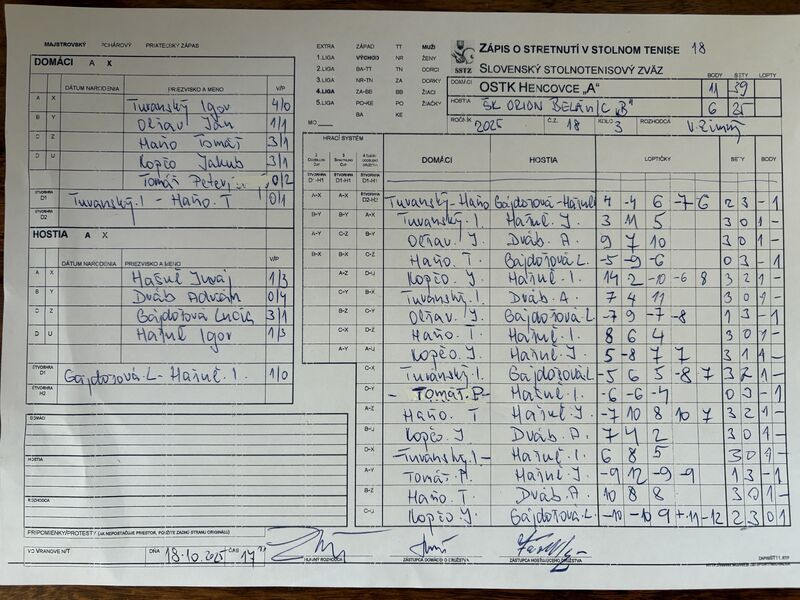 MAJSTROVSKÝ POHÁROVÝ PRIATEĽSKÝ ZÁPAS
DOMÁCI A X
DÁTUM NARODENIA PRIEZVISKO A MENO V/P
A X Turanský Igor 4/0
B Y Oľšav Ján 1/1
C Z Haňo Tomáš 3/1
D U Kopčo Jakub 3/1
Tomáš Peter 0/2
ŠTVORHRA D1 Turanský I - Haňo T 0/1
ŠTVORHRA D2
HOSTIA A X
DÁTUM NARODENIA PRIEZVISKO A MENO V/P
A X Juraj 1/3
B Y Dváb Adrián 0/4
C Z Gajdošová Lucia 3/1
D U Igor 1/3
ŠTVORHRA Gajdošová L- I. 1/0
ŠTVORHRA H2
DOMÁCI
HOSTIA
ROZHODCA
PRIPOMIENKY/PROTESTY (AK NEPOSTAČUJE PRIESTOR, POUŽITE ZADNÚ STRANU ORIGINÁLU)
VO VRANOVE N/T DŇA 18.10.2025 ČAS 17
HLAVNÝ ROZHODCA
ZÁSTUPCA DOMÁCEHO DRUŽSTVA
ZÁSTUPCA HOSŤUJÚCEHO DRUŽSTVA
EXTRA ZÁPAD TT MUŽI
1.LIGA VÝCHOD NR ŽENY
2.LIGA BA-TT TN DORCI
3.LIGA NR-TN ZA DORKY
4.LIGA ZA-BB BB ŽIACI
5.LIGA PO-KE PO ŽIAČKY
MO BA KE
SSTZ
ZÁPIS O STRETNUTÍ V STOLNOM TENISE 18
SLOVENSKÝ STOLNOTENISOVÝ ZVÄZ
BODY SETY LOPTY
DOMÁCI OSTK HENCOVCE „A" 11 39
HOSTIA ŠK ORION "B" 6 25
ROČNÍK 2025 Č.Z. 18 KOLO 3 ROZHODCA V. Zimný
HRACÍ SYSTÉM
DOMÁCI HOSTIA LOPTIČKY SETY BODY
Turanský-Haňo Gajdošová- 4 -4 6 -7 -6 2 3 - 1
B-Y A-Y Turanský I. J. 3 11 5 3 0 1 -
Oľšav J. Dváb A. 9 7 10 3 0 1 -
Haňo T. Gajdošová L. -5 -9 -6 0 3 - 1
Kopčo J. I. 14 2 -10 -6 8 3 2 1 -
Turanský I. Dváb A. 7 4 11 3 0 1 -
Oľšav J. Gajdošová L -7 9 -7 -8 1 3 - 1
Haňo T. I. 8 6 4 3 0 1 -
Kopčo J. J. 5 -8 7 7 3 1 1 -
Turanský I. Gajdošová L -5 6 5 -8 7 3 2 1 -
- Tomáš P- I. -6 -6 -4 0 3 - 1
Haňo T J. -7 10 8 10 7
Kopčo J Dváb A. 7 4 2 3 0 1 -
-Turanský I- I. 6 8 5 3 0 1 -
Tomáš P. J. -9 12 -9 -9 1 3 - 1
Haňo T. Dváb A. 10 8 8 3 0 1 -
Kopčo J. Gajdošová L. -10 -10 9 11 -12 2 3 0 1